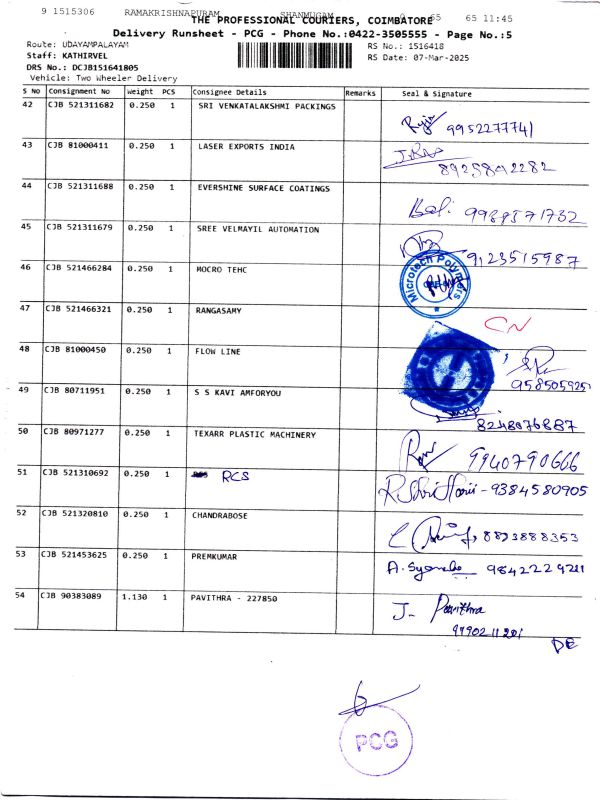 9 1515306 RAMAKRISHNAPURAM SHANMUGAM 0 65 65 11:45
THE PROFESSIONAL COURIERS, COIMBATORE
Delivery Runsheet - PCG - Phone No.:0422-3505555 - Page No.:5
Route: UDAYAMPALAYAM RS No.: 1516418
Staff: KATHIRVEL RS Date: 07-Mar-2025
DRS No.: DCJB151641805
Vehicle: Two Wheeler Delivery
S No Consignment No Weight PCS Consignee Details Remarks Seal & Signature
42 CJB 521311682 0.250 1 SRI VENKATALAKSHMI PACKINGS
9952277741
43 CJB 81000411 0.250 1 LASER EXPORTS INDIA
8925892282
44 CJB 521311688 0.250 1 EVERSHINE SURFACE COATINGS
45 CJB 521311679 0.250 1 SREE VELMAYIL AUTOMATION
9123515987
46 CJB 521466284 0.250 1 MOCRO TEHC
Microtech Polymers
47 CJB 521466321 0.250 1 RANGASAMY
CN
48 CJB 81000450 0.250 1 FLOW LINE
49 CJB 80711951 0.250 1 S S KAVI AMFORYOU
8248076887
50 CJB 80971277 0.250 1 TEXARR PLASTIC MACHINERY
9940790666
51 CJB 521310692 0.250 1 RCS
9384580905
52 CJB 521320810 0.250 1 CHANDRABOSE
53 CJB 521453625 0.250 1 PREMKUMAR
54 CJB 90383089 1.130 1 PAVITHRA - 227850
J. Pavithra
DE
PCG